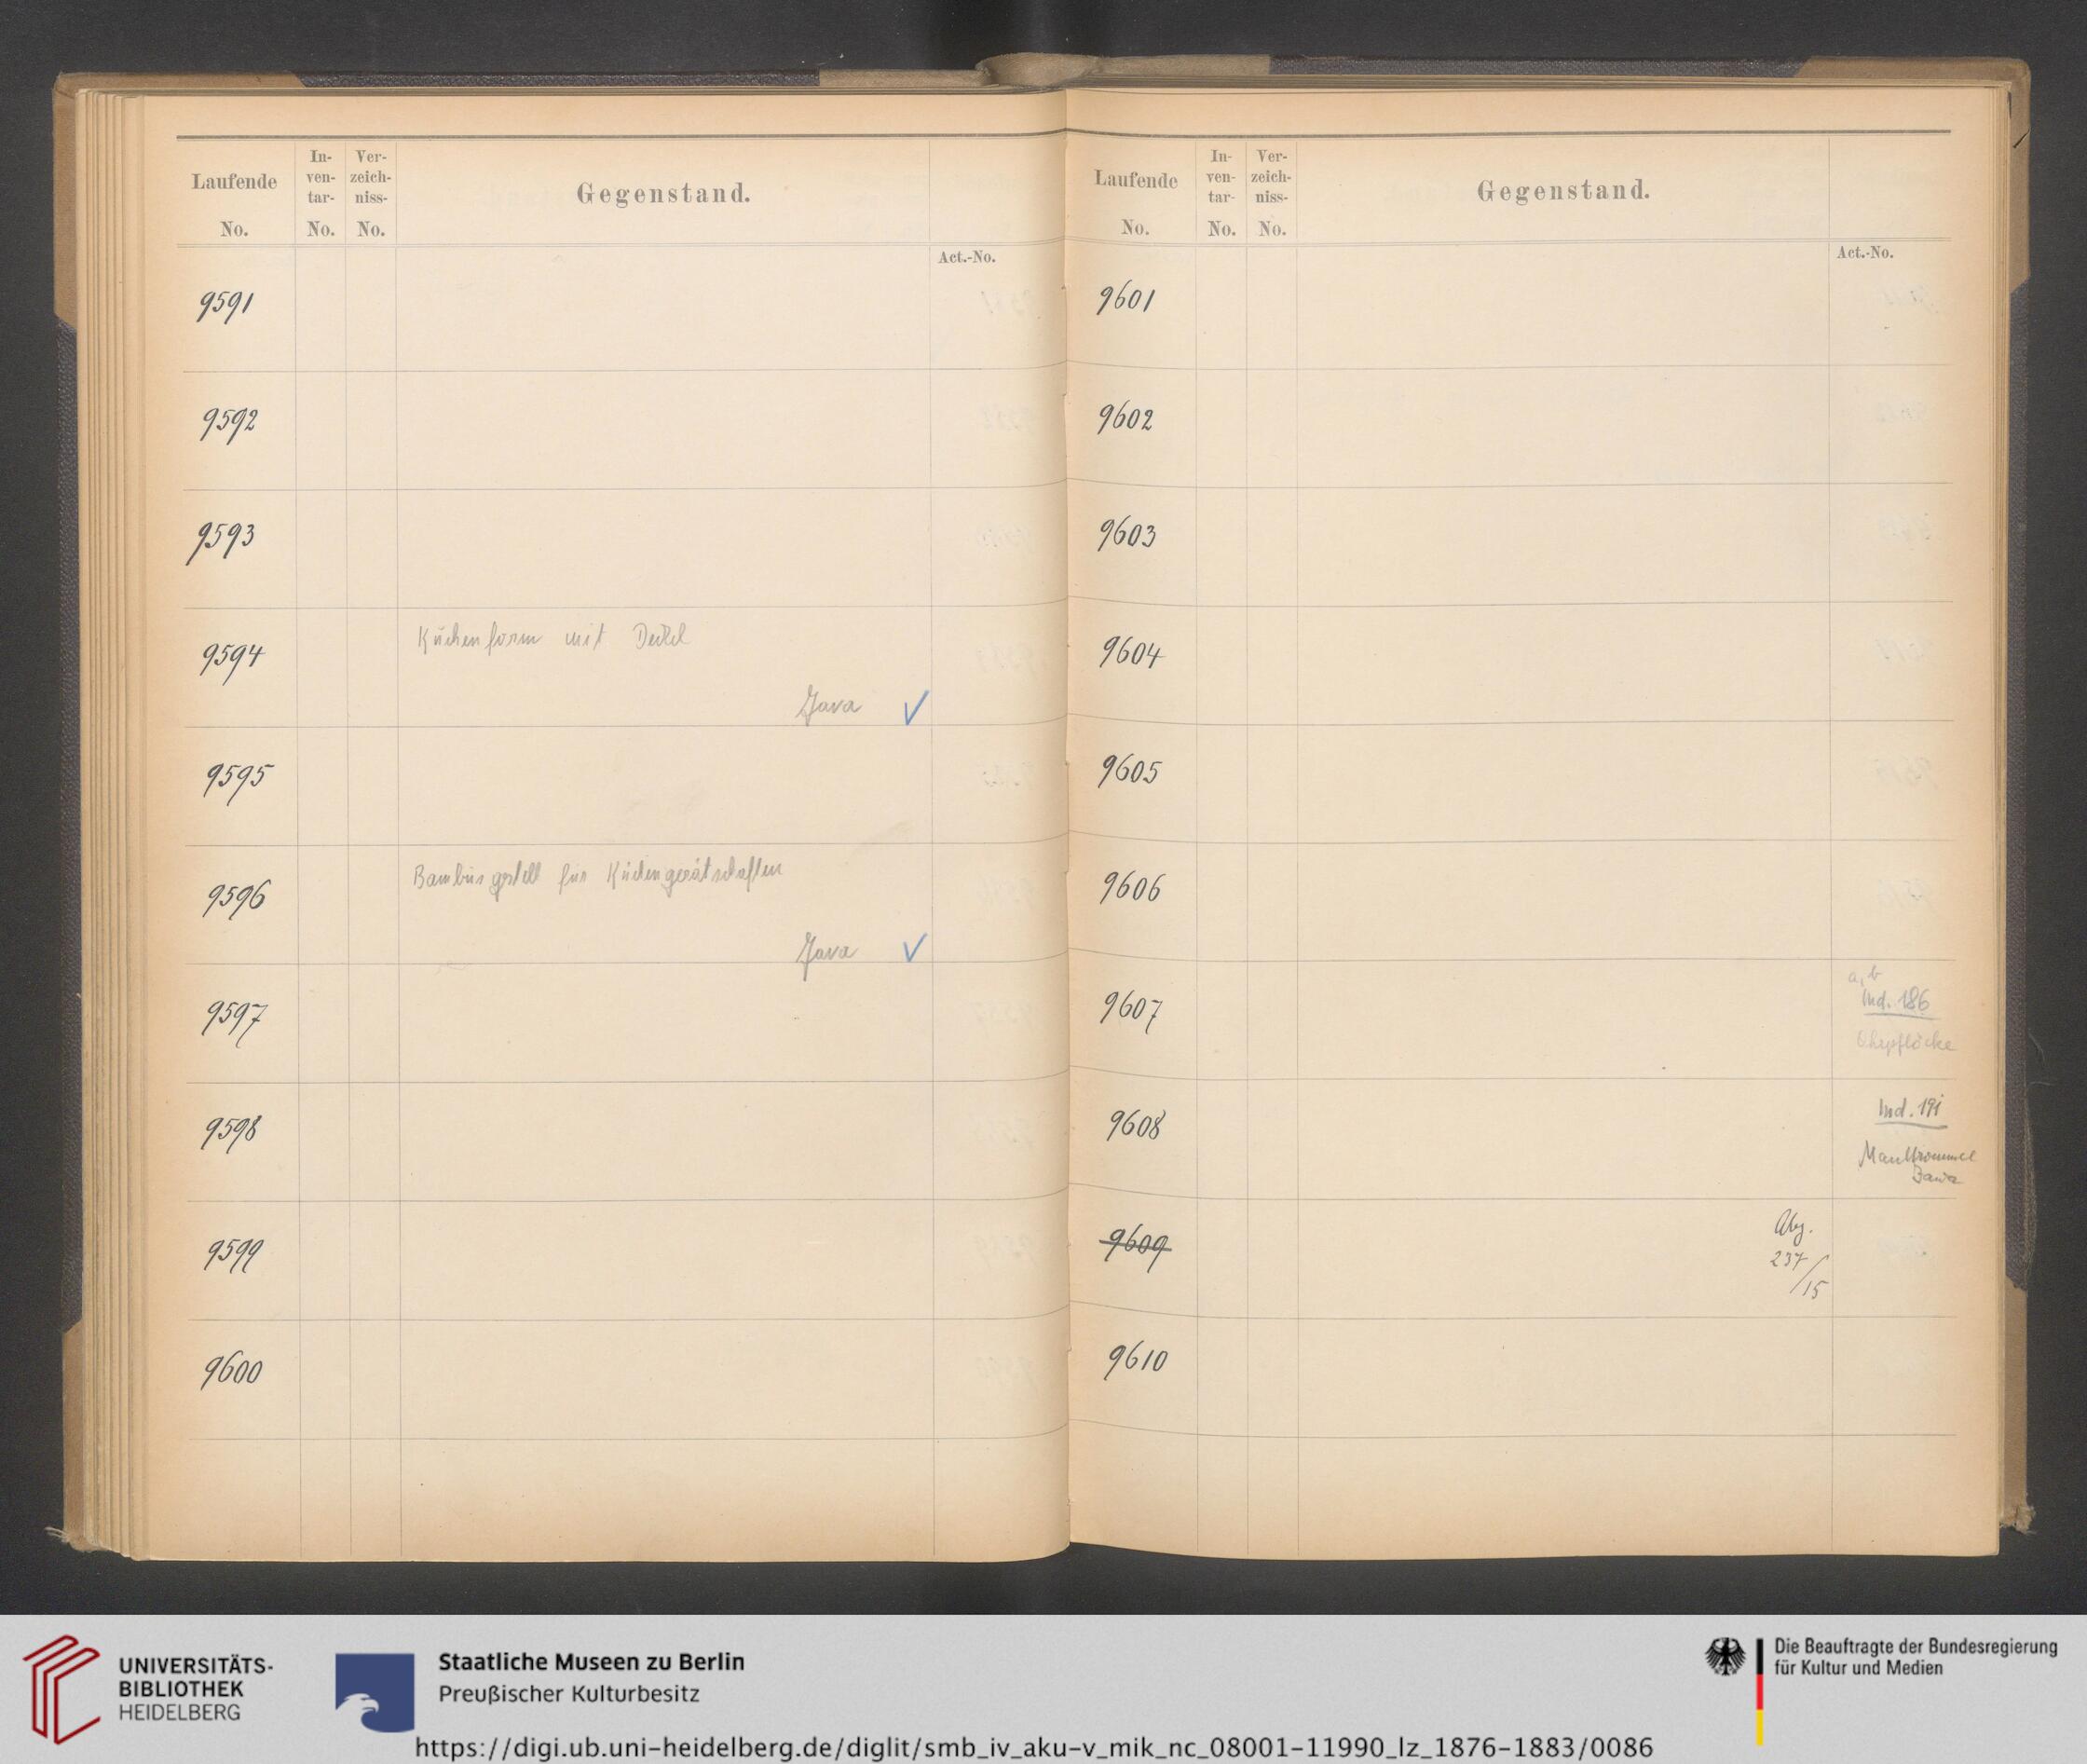 Laufende No.
In-ven-tar-No.
Ver-zeich-niss-No.
Gegenstand.
Act.-No.
9591
9592
9593
9594
Küchenform mit Deckel
Java ✓
9595
9596
Bambusgestell für Küchengerätschaften
Java ✓
9597
9598
9599
9600
Laufende No.
In-ven-tar-No.
Ver-zeich-niss-No.
Gegenstand.
Act.-No.
9601
9602
9603
9604
9605
9606
9607
a, b
Ind. 186
Ohrpflöcke
9608
Ind. 191
Maultrommel
9609
Abg.
237/15
9610
UNIVERSITÄTS-
BIBLIOTHEK
HEIDELBERG
Staatliche Museen zu Berlin
Preußischer Kulturbesitz
Die Beauftragte der Bundesregierung
für Kultur und Medien
https://digi.ub.uni-heidelberg.de/diglit/smb_iv_aku-v_mik_nc_08001-11990_lz_1876-1883/0086